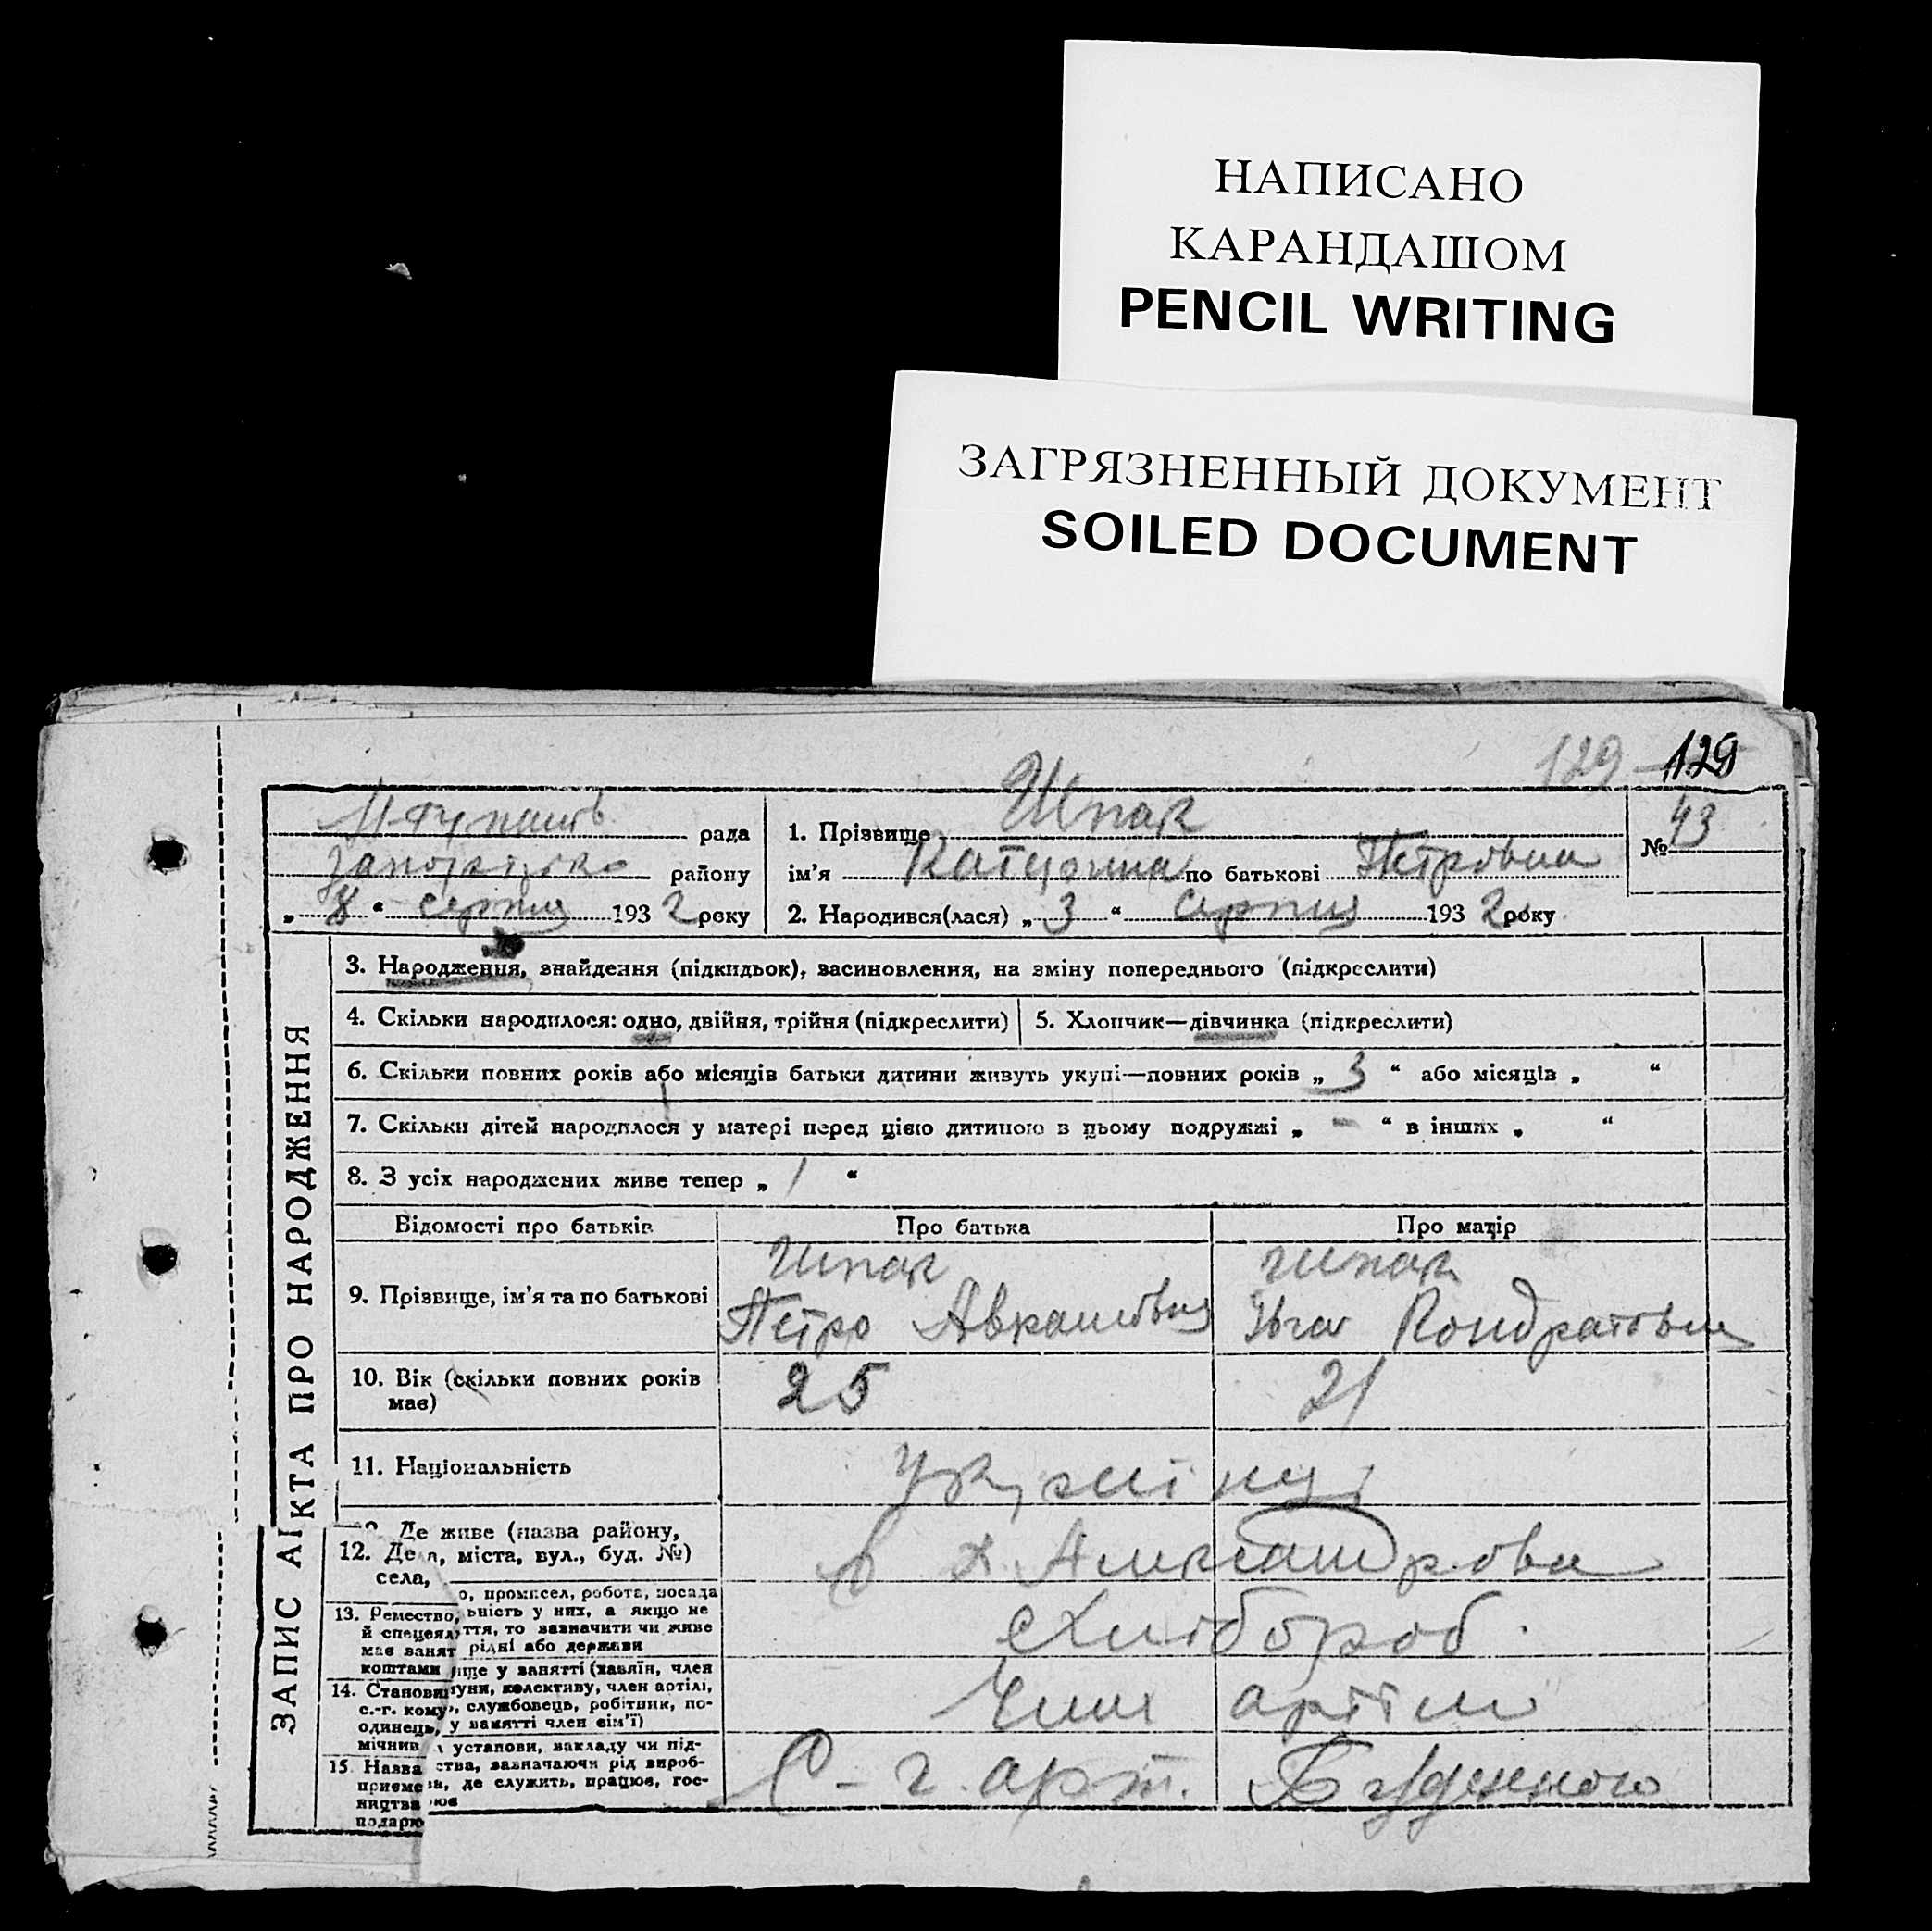 НАПИСАНО
КАРАНДАШОМ
PENCIL WRITING
ЗАГРЯЗНЕННЫЙ ДОКУМЕНТ
SOILED DOCUMENT
129 129
рада
району
„ 8 “ серпня 1932 року
1. Прізвище Шпак
ім'я Катерина по батькові Петровна
2. Народився(лася) „ 3 “ серпня 1932 року
№ 43
ЗАПИС АКТА ПРО НАРОДЖЕННЯ
3. Народження, знайдення (підкидьок), засиновлення, на зміну попереднього (підкреслити)
4. Скільки народилося: одно, двійня, трійня (підкреслити)
5. Хлопчик—дівчинка (підкреслити)
6. Скільки повних років або місяців батьки дитини живуть укупі—повних років „ 3 “ або місяців „ “
7. Скільки дітей народилося у матері перед цією дитиною в цьому подружжі „ – “ в інших „ “
8. З усіх народжених живе тепер „ 1 “
Відомості про батьків Про батька Про матір
9. Прізвище, ім'я та по батькові
Шпак Шпак
Петро Аврамович Ївга Кондратовна
10. Вік (скільки повних років має) 25 21
11. Національність українці
12. Де живе (назва району,
села, міста, вул., буд. №)
х. Александрова
13. Ремество, промисел, робота, посада
й спеціяльність у них, а якщо не
має заняття, то зазначити чи живе
коштами рідні або держави
Хлібороб
14. Становище у занятті (хазяїн, член
с.-г. комуни, колективу, член артілі,
одинець, службовець, робітник, по-
мічний у занятті член сім'ї)
Член артілі
15. Назва установи, закладу чи під-
приємства, зазначаючи рід вироб-
ництва, де служить, працює, гос-
подарює
С-г. арт. Будьоного